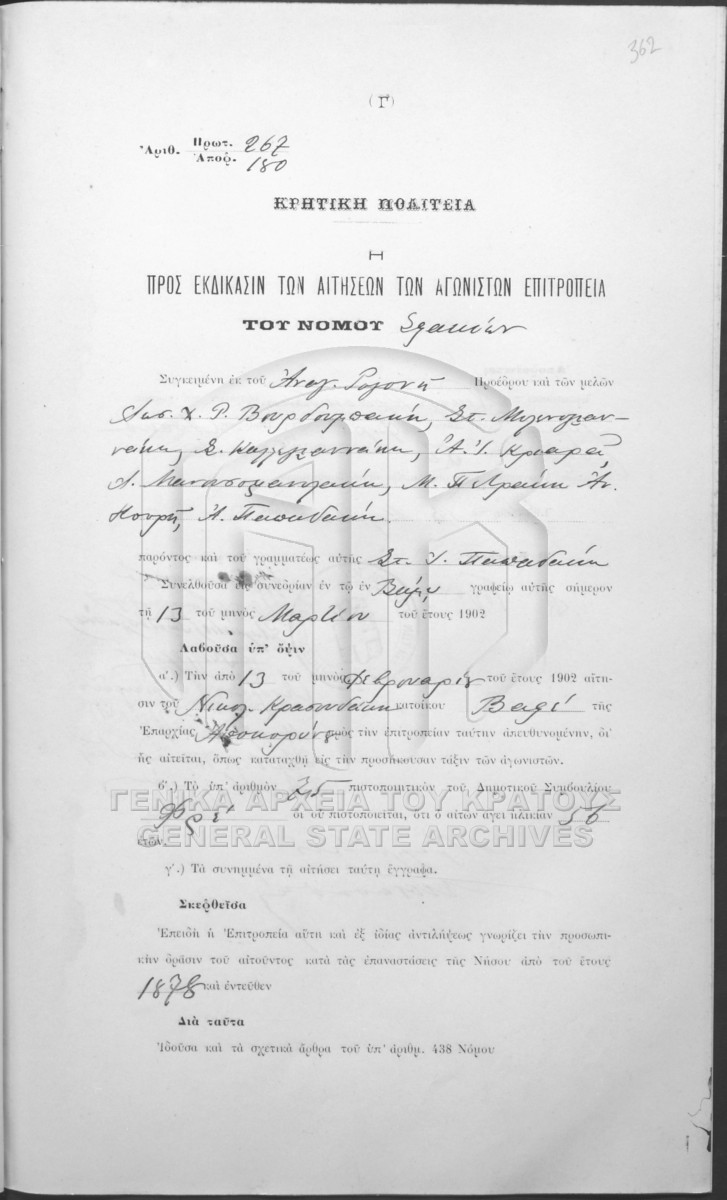 362
(Γ)
Ἀριθ. Πρωτ. 267
Ἀποφ. 180
ΚΡΗΤΙΚΗ ΠΟΛΙΤΕΙΑ
Η
ΠΡΟΣ ΕΚΔΙΚΑΣΙΝ ΤΩΝ ΑΙΤΗΣΕΩΝ ΤΩΝ ΑΓΩΝΙΣΤΩΝ ΕΠΙΤΡΟΠΕΙΑ
ΤΟΥ ΝΟΜΟΥ Σφακιών
Συγκειμένη ἐκ τοῦ Ἀναγ. Προέδρου καὶ τῶν μελῶν
Χ. Ρ. Βουρδουμπάκη, Στ.
Σ. Καλλιγιαννάκη, Α. Ι. Κριαρᾶ
Λ. Μανουσογιαννάκη, Μ. Πετράκη Ἀν.
Α. Παπαδάκη.
παρόντος καὶ τοῦ γραμματέως αὐτῆς Στ. Ι. Παπαδάκη
Συνελθοῦσα εἰς συνεδρίαν ἐν τῷ ἐν Βάμῳ γραφείῳ αὐτῆς σήμερον
τῇ 13 τοῦ μηνὸς Μαρτίου τοῦ ἔτους 1902
Λαβοῦσα ὑπ' ὄψιν
α΄.) Τὴν ἀπὸ 13 τοῦ μηνὸς Φεβρουαρίου τοῦ ἔτους 1902 αἴτη-
σιν τοῦ Νικολ. Κρασουδάκη κατοίκου Βαφέ τῆς
Ἐπαρχίας Ἀποκορώνου πρὸς τὴν ἐπιτροπείαν ταύτην ἀπευθυνομένην, δι'
ἧς αἰτεῖται, ὅπως καταταχθῇ εἰς τὴν προσήκουσαν τάξιν τῶν ἀγωνιστῶν.
β΄.) Τὸ ὑπ' ἀριθμὸν πιστοποιητικὸν τοῦ Δημοτικοῦ Συμβουλίου
Φρέ δι' οὗ πιστοποιεῖται, ὅτι ὁ αἰτῶν ἄγει ἡλικίαν 56
ἐτῶν.
ΓΕΝΙΚΑ ΑΡΧΕΙΑ ΤΟΥ ΚΡΑΤΟΥΣ
GENERAL STATE ARCHIVES
γ΄.) Τὰ συνημμένα τῇ αἰτήσει ταύτῃ ἔγγραφα.
Σκεφθεῖσα
Ἐπειδὴ ἡ Ἐπιτροπεία αὕτη καὶ ἐξ ἰδίας ἀντιλήψεως γνωρίζει τὴν προσωπι-
κὴν δρᾶσιν τοῦ αἰτοῦντος κατὰ τὰς ἐπαναστάσεις τῆς Νήσου ἀπὸ τοῦ ἔτους
1878 καὶ ἐντεῦθεν
Διὰ ταῦτα
Ἰδοῦσα καὶ τὰ σχετικὰ ἄρθρα τοῦ ὑπ' ἀριθμ. 438 Νόμου